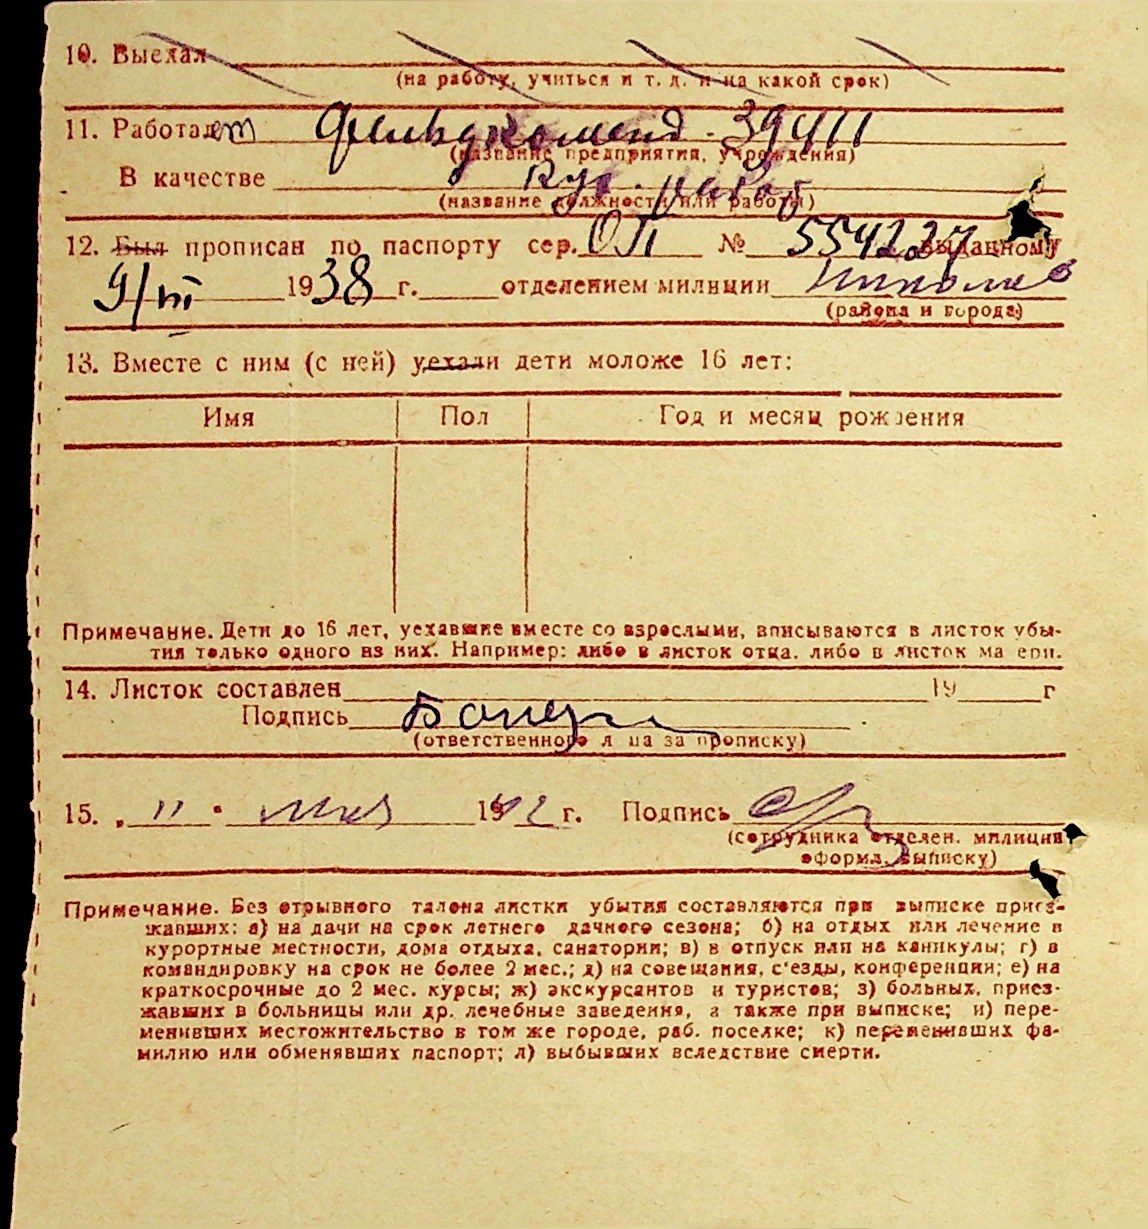 10. Выехал
(на работу, учиться и т. д. и на какой срок)
11. Работает
(название предприятия, учреждения)
В качестве
(название должности или работы)
12. Был прописан по паспорту сер. ОП № 554227 выданному
9/III 1938 г. отделением милиции
(района и города)
13. Вместе с ним (с ней) уехали дети моложе 16 лет:
Имя Пол Год и месяц рождения
Примечание. Дети до 16 лет, уехавшие вместе со взрослыми, вписываются в листок убы-
тия только одного из них. Например: либо в листок отца. либо в листок ма ери.
14. Листок составлен 19 г
Подпись
(ответственного л ца за прописку)
15. „ 11 " мая 1942 г. Подпись
(сотрудника отделен. милиции
оформл. выписку)
Примечание. Без отрывного талона листки убытия составляются при выписке приез-
жавших: а) на дачи на срок летнего дачного сезона; б) на отдых или лечение в
курортные местности, дома отдыха, санатории; в) в отпуск или на каникулы; г) в
командировку на срок не более 2 мес.; д) на совещания, с'езды, конференции; е) на
краткосрочные до 2 мес. курсы; ж) экскурсантов и туристов; з) больных, приез-
жавших в больницы или др. лечебные заведения, а также при выписке; и) пере-
менивших местожительство в том же городе, раб. поселке; к) переменивших фа-
милию или обменявших паспорт; л) выбывших вследствие смерти.